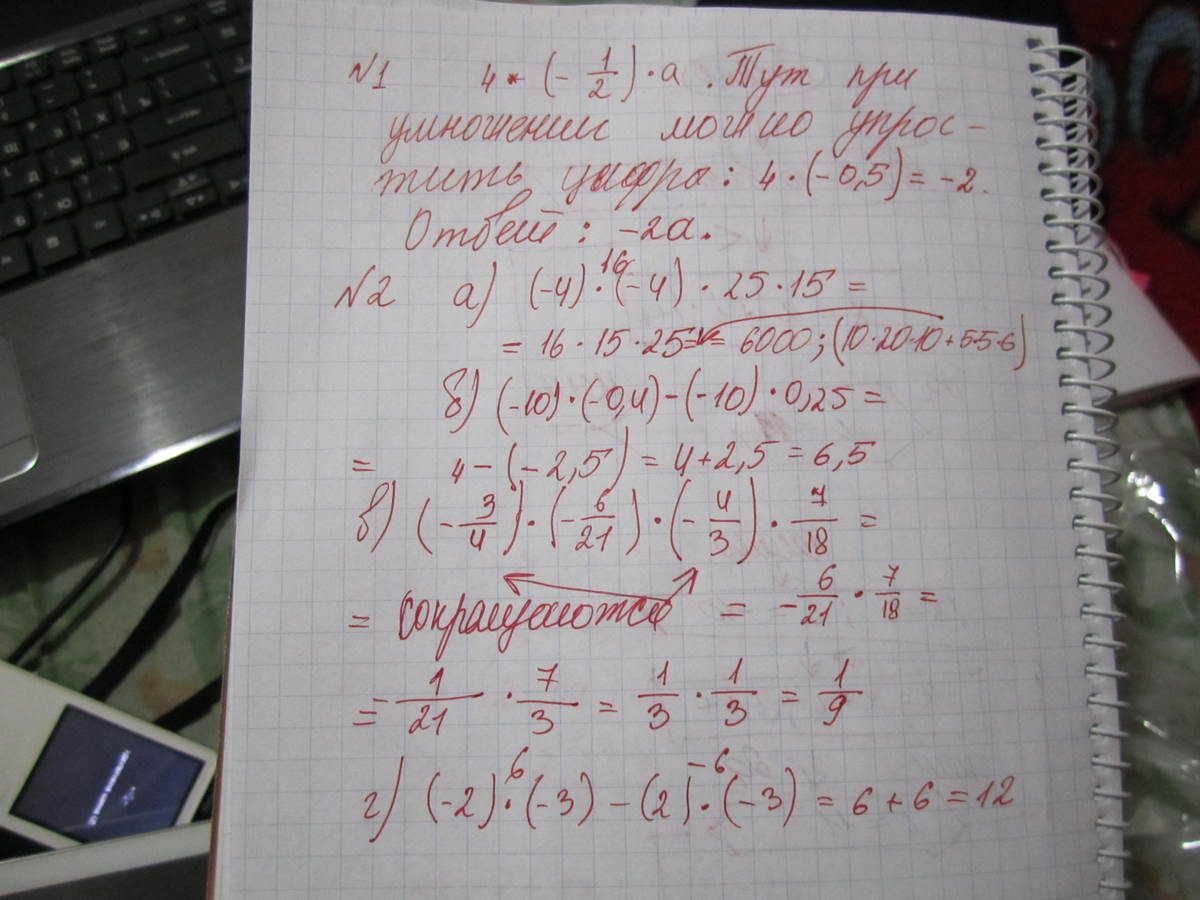 №1 4 · (- 1/2) · а. Тут при
умножении можно упрос-
тить цифры: 4 · (-0,5) = -2.
Ответ: -2а.
№2 а) (-4) · (-4) · 25 · 15 =
16
= 16 · 15 · 25 = = 6000; (10·20·10 + 5·5·6)
б) (-10) · (-0,4) - (-10) · 0,25 =
= 4 - (-2,5) = 4 + 2,5 = 6,5
в) (- 3/4) · (- 6/21) · (- 4/3) · 7/18 =
= сокращаются = - 6/21 · 7/18 =
= - 1/21 · 7/3 = 1/3 · 1/3 = 1/9
6 -6
г) (-2) · (-3) - (2) · (-3) = 6 + 6 = 12